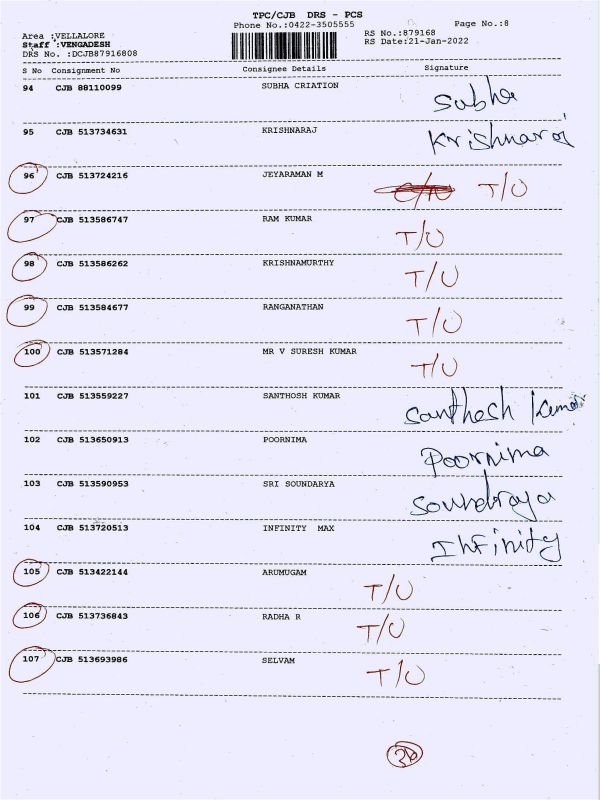 TPC/CJB DRS - PCS
Phone No.:0422-3505555 Page No.:8
Area :VELLALORE
Staff :VENGADESH
DRS No. :DCJB87916808
RS No.:879168
RS Date:21-Jan-2022
S No Consignment No Consignee Details Signature
94 CJB 88110099 SUBHA CRIATION Subha
95 CJB 513734631 KRISHNARAJ Krishnaraj
96 CJB 513724216 JEYARAMAN M T/O
97 CJB 513586747 RAM KUMAR T/O
98 CJB 513586262 KRISHNAMURTHY T/O
99 CJB 513584677 RANGANATHAN T/O
100 CJB 513571284 MR V SURESH KUMAR T/O
101 CJB 513559227 SANTHOSH KUMAR Santhosh Kumar
102 CJB 513650913 POORNIMA Poornima
103 CJB 513590953 SRI SOUNDARYA Soundraya
104 CJB 513720513 INFINITY MAX Infinity
105 CJB 513422144 ARUMUGAM T/O
106 CJB 513736843 RADHA R T/O
107 CJB 513693986 SELVAM T/O